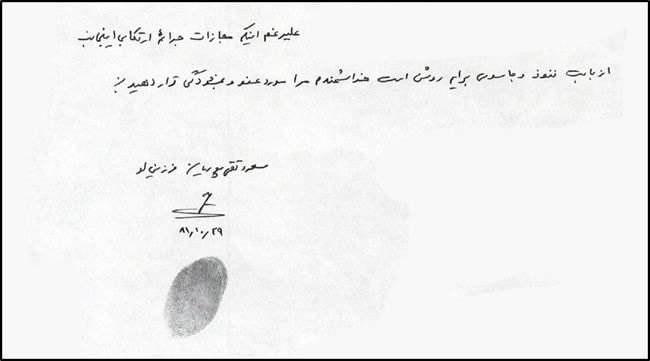 علیرغم اینکه مجازات جرائم ارتکابی اینجانب
از باب نفوذ و جاسوسی برایم روشن است خواهشمندم مرا مورد عفو و بخشودگی قرار دهید
مسعود تقی
۸۱/۱۰/۲۹